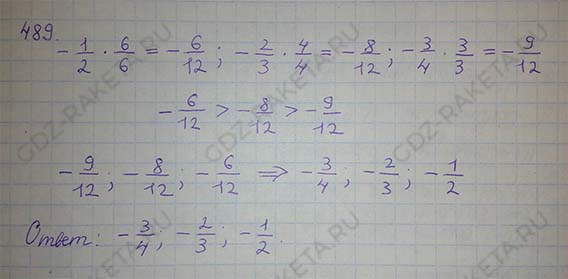 489.
-1/2 · 6/6 = -6/12 ; -2/3 · 4/4 = -8/12 ; -3/4 · 3/3 = -9/12
-6/12 > -8/12 > -9/12
-9/12 ; -8/12 ; -6/12 ⇒ -3/4 ; -2/3 ; -1/2
Ответ: -3/4 ; -2/3 ; -1/2.
GDZ-RAKETA.RU